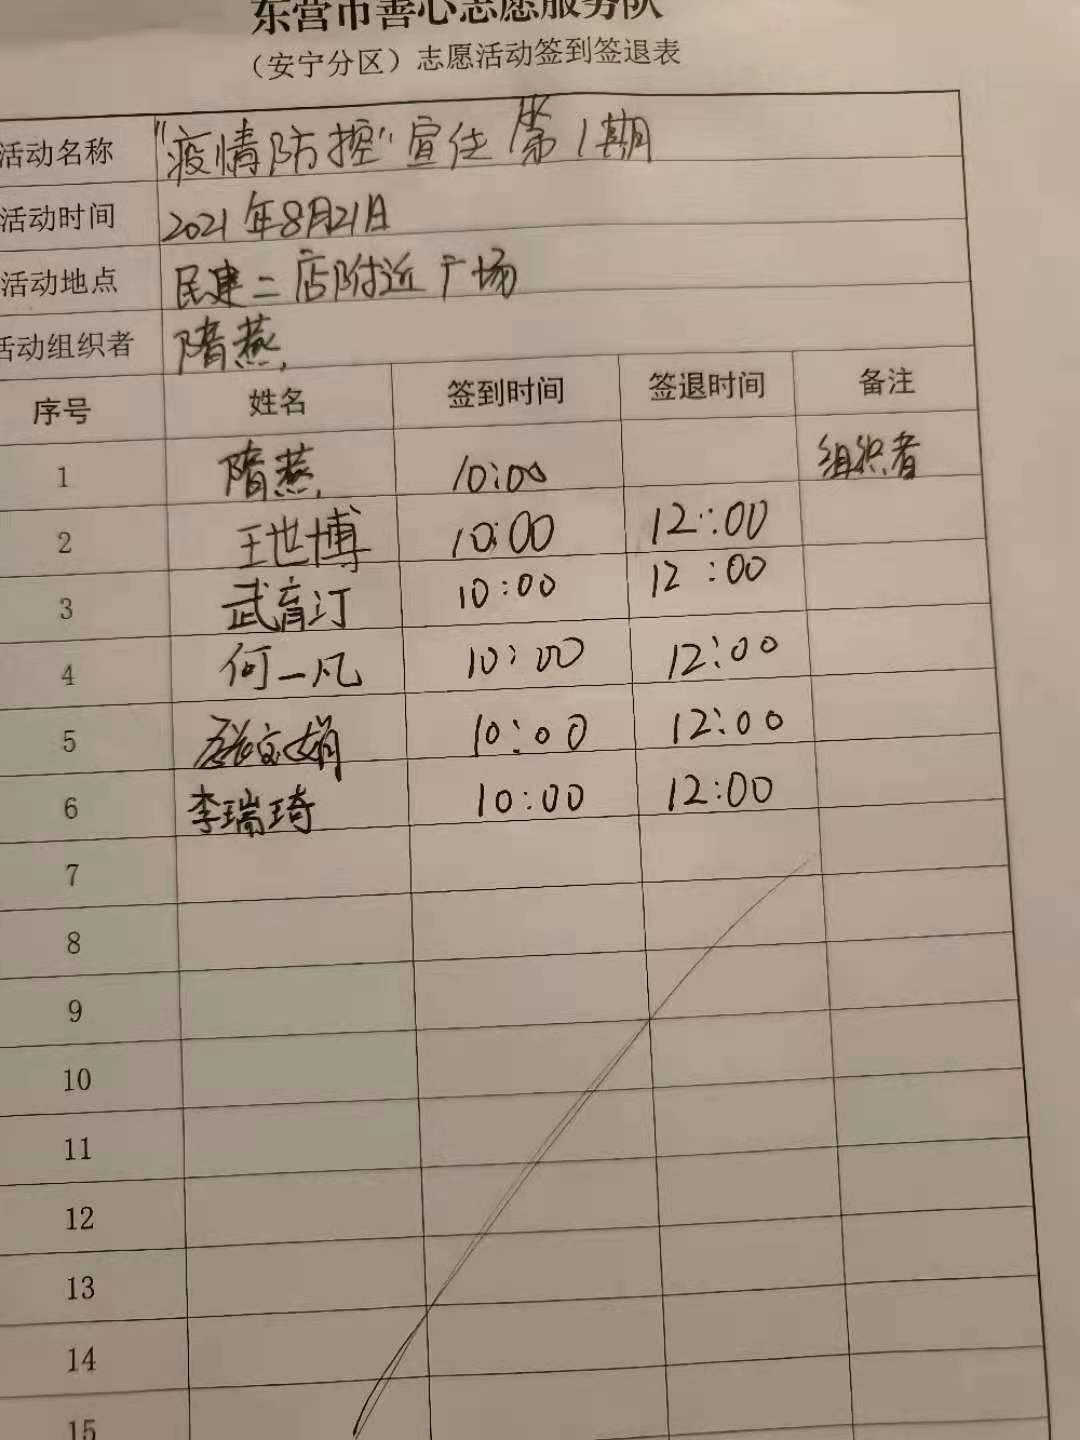 东营市善心志愿服务队
（安宁分区）志愿活动签到签退表
活动名称 "疫情防控"宣传 第1期
活动时间 2021年8月21日
活动地点 民建二店附近广场
活动组织者 隋燕
序号 姓名 签到时间 签退时间 备注
1 隋燕 10:00 组织者
2 王世博 10:00 12:00
3 武育汀 10:00 12:00
4 何一凡 10:00 12:00
5 10:00 12:00
6 李瑞琦 10:00 12:00
7
8
9
10
11
12
13
14
15